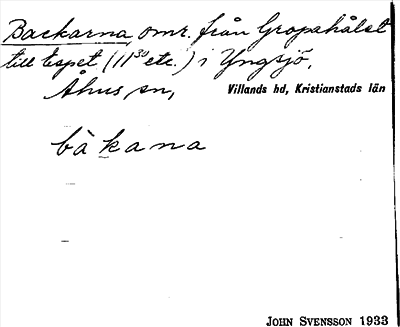 Backarna omr. från Gropahålet
till Espet (11³⁰ etc.) i Yngsjö,
Åhus sn, Villands hd, Kristianstads län
bàkana
JOHN SVENSSON 1933